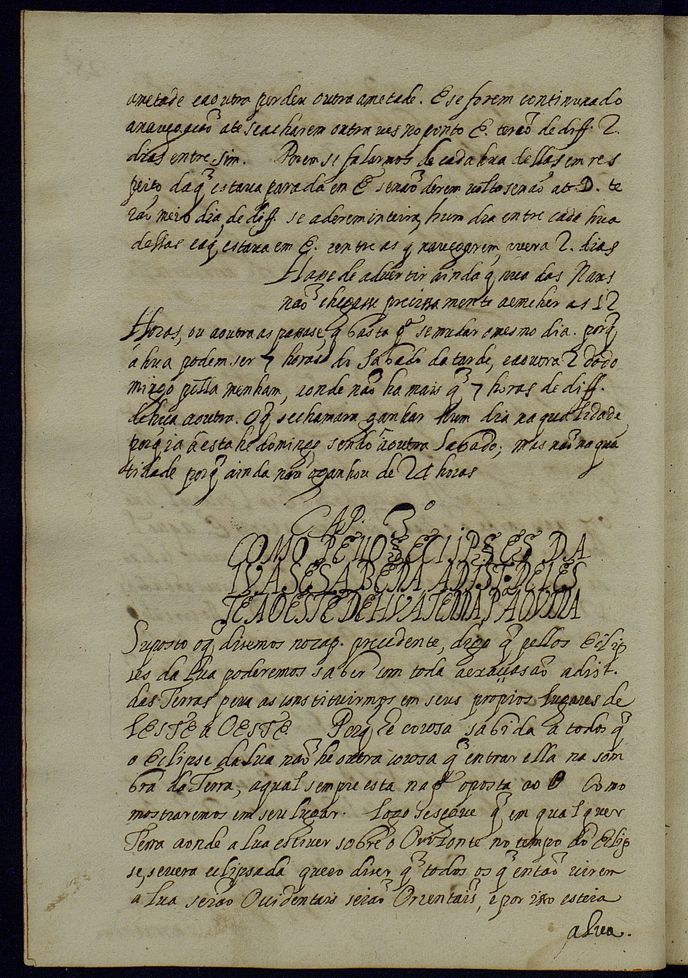 ametade e a outra perder outra ametade. E se forem continuando
a navegação ate se acharem outra ves no ponto E. terão de diff. 2.
dias entre sim. Porem se falarmos de cada hua dellas em res
peito da q̃ estava parada em E se não derem volta senão ate D. te
rão meio dia, de diff. se a derem inteira, hum dia entre cada hua
dellas e a q̃ estava em E. e entre as q̃ navegarem, avera 2. dias
Hase de advertir ainda q̃ hua das Naus
não chegasse precissamente a encher as 12
Horas, ou a outra as passase q̃ basta q̃ se mudar o mesmo dia. porq̃
a hua podem ser 7 horas do Sabado da tarde, e a outra 2 do do
mingo pella menham, e onde não ha mais q̃ 7 horas de diff.
de hua a outra. O q̃ se chamara ganhar hum dia na qualidade
porq̃ ia a esta he domingo, sendo a outra Sabado; mas não na quã
tidade porq̃ ainda não o ganhou de 24 horas
CAP. 3º
COMO PELLOS ECLIPSES DA
LVA SE SABERA A DIST. DE LES
TE A OESTE DE HVA TERRA PA OVTRA
Suposto o q̃ dissemos no cap. precedente, digo q̃ pellos Eclip
ses da Lua poderemos saber com toda aexaussão a dist.
das Terras pera as constituirmos em seus propios lugares de
LESTE a OESTE. Porq̃ he cousa sabida a todos q̃
o Eclipse da Lua não he outra cousa q̃ entrar ella na som
bra da Terra, a qual sempre esta na pte oposta ao ☉ Como
mostraremos em seu lugar. Logo se segue q̃ em qualquer
Terra aonde a Lua estiver sobre o Orizonte no tempo do Eclip
se, se vera eclipsada quero diser q̃ todos os q̃ então virem
a Lua serão Occidentais serão Orientais, e por isso estera
a Lua.